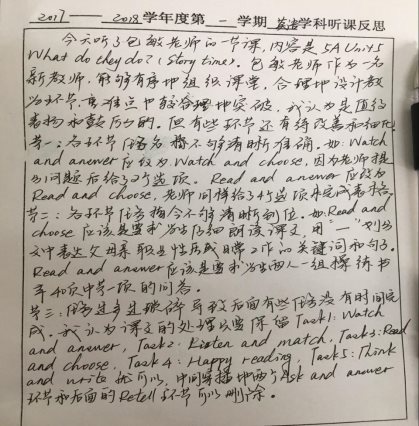 2017——2018学年度第一学期 英语学科听课反思
今天听了包敏老师的一节课,内容是5A Unit5
What do they do? (Story time). 包敏老师作为一名
新教师,能够有序地组织课堂,合理地设计教
为环节,重难点中能合理地突破,我认为是值得
表扬和鼓励的。但有些环节还有待改善和细化
第一:各环节任务指令不够清晰准确。如:Watch
and answer应改为Watch and choose,因为老师提
出问题后给了2个选项。Read and answer应改为
Read and choose,老师同样给了4个选项来完成表格。
第二:各环节任务指令不够清晰到位。如:Read and
choose应该是要求学生仔细朗读课文,用"—"划出
文中表达父母亲职业性质或日常工作的关键词和句子。
Read and answer应该是要求学生两人一组操练书
平40页中第一项的问答。
第三:任务过多过琐碎导致后面有些任务没有时间完
成。我认为课文的处理只要保留Task1: Watch
and answer, Task2: Listen and match, Task3: Read
and choose, Task4: Happy reading, Task5: Think
and write就可以,中间穿插地两个Ask and answer
环节和后面的Retell环节可以删除。